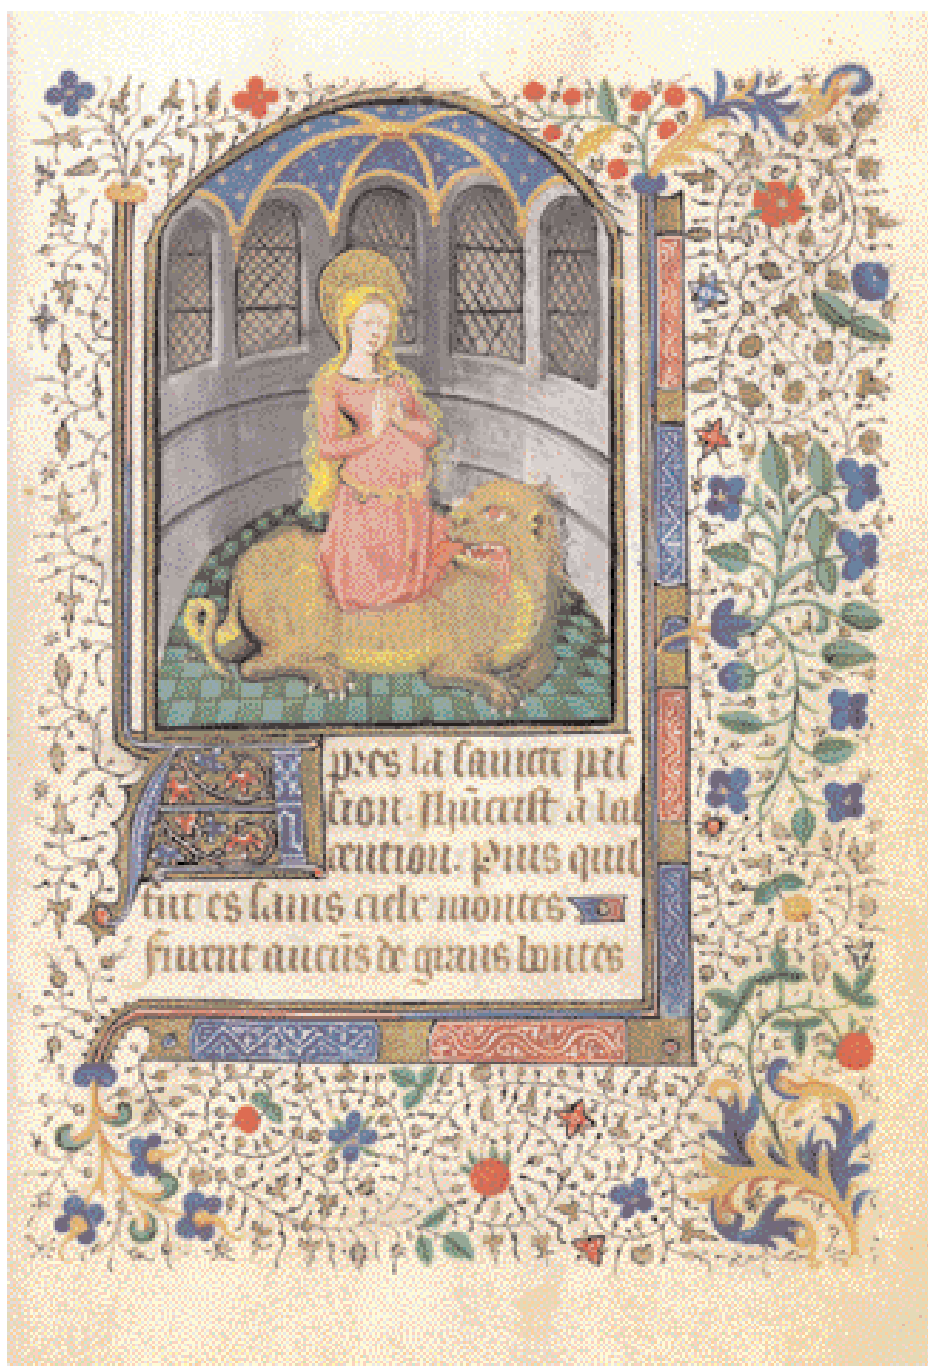 Apres la saincte pas
sion. Jhūcrist a las
cention. Puis quil
fut es sains montes
furent aucūs de grans bontes